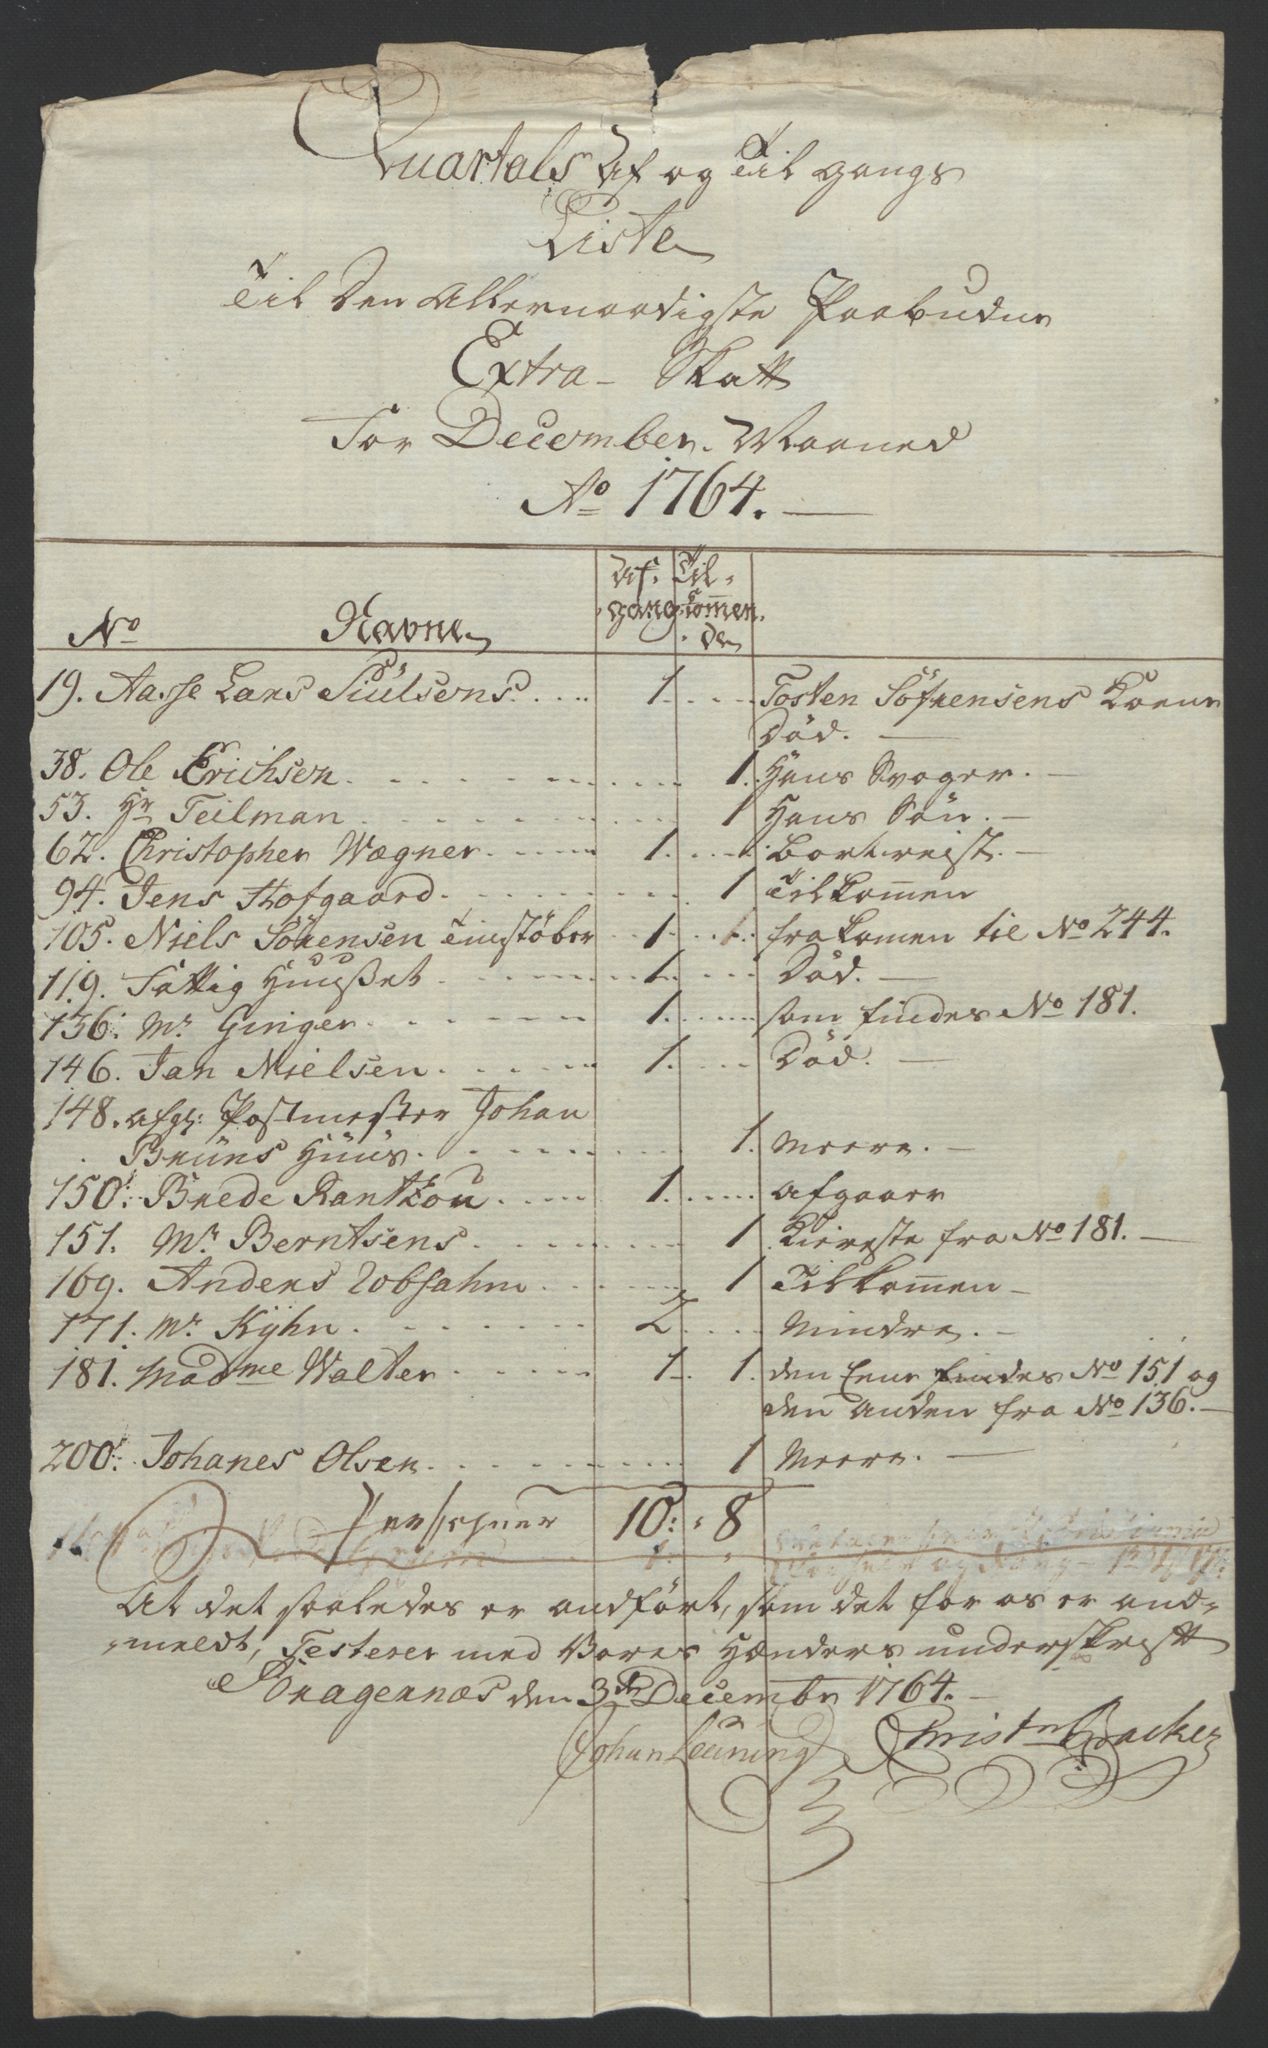 Quartals Af og Til gangs
Liste
Til Den Allernaadigste Paabudne
Extra- Skatt
For December. Maaned
Ao 1764.
No Navne Af- gang Til- kommen- de
19. Aasse Lars Siulsens. 1. Tosten Söfrensens Kone
Död.
38. Ole Erichsen. 1. Hans Svoger.
53. Hr Teilman. 1 Hans Sön.
62. Christopher Wægner. 1. bortreist.
94. Jens Hofgaard. 1 Tilkommen
105. Niels Sörensen Tinstøber 1. frakomen til No 244.
119. Fattig Huuset 1. Död.
136. Mr Ginger. 1. som findes No 181.
146. Jan Nielsen. 1. Död.
148. afg: Postmester Johan
Brüns Hüüs. 1. Meere.
150: Brede Rantzou. 1. afgaaer
151. Mr Berntsens. 1 Kiereste fra No 181.
169. Anders Robsahm 1 Tilkommen
171. Mr Kÿhn. 2 Mindre.
181. Madme Walter 1. 1. den Eene findes No 151 og
den anden fra No 136.
200: Johanes Olsen. 1 Meere.
Persohner 10: 8
At det saaledes er andfört, som det for os er and-
meldt, Testerer med Vores Hænders underskrift
Bragernæs den 3de Decembr 1764.
Johan Leüning Christn Backer